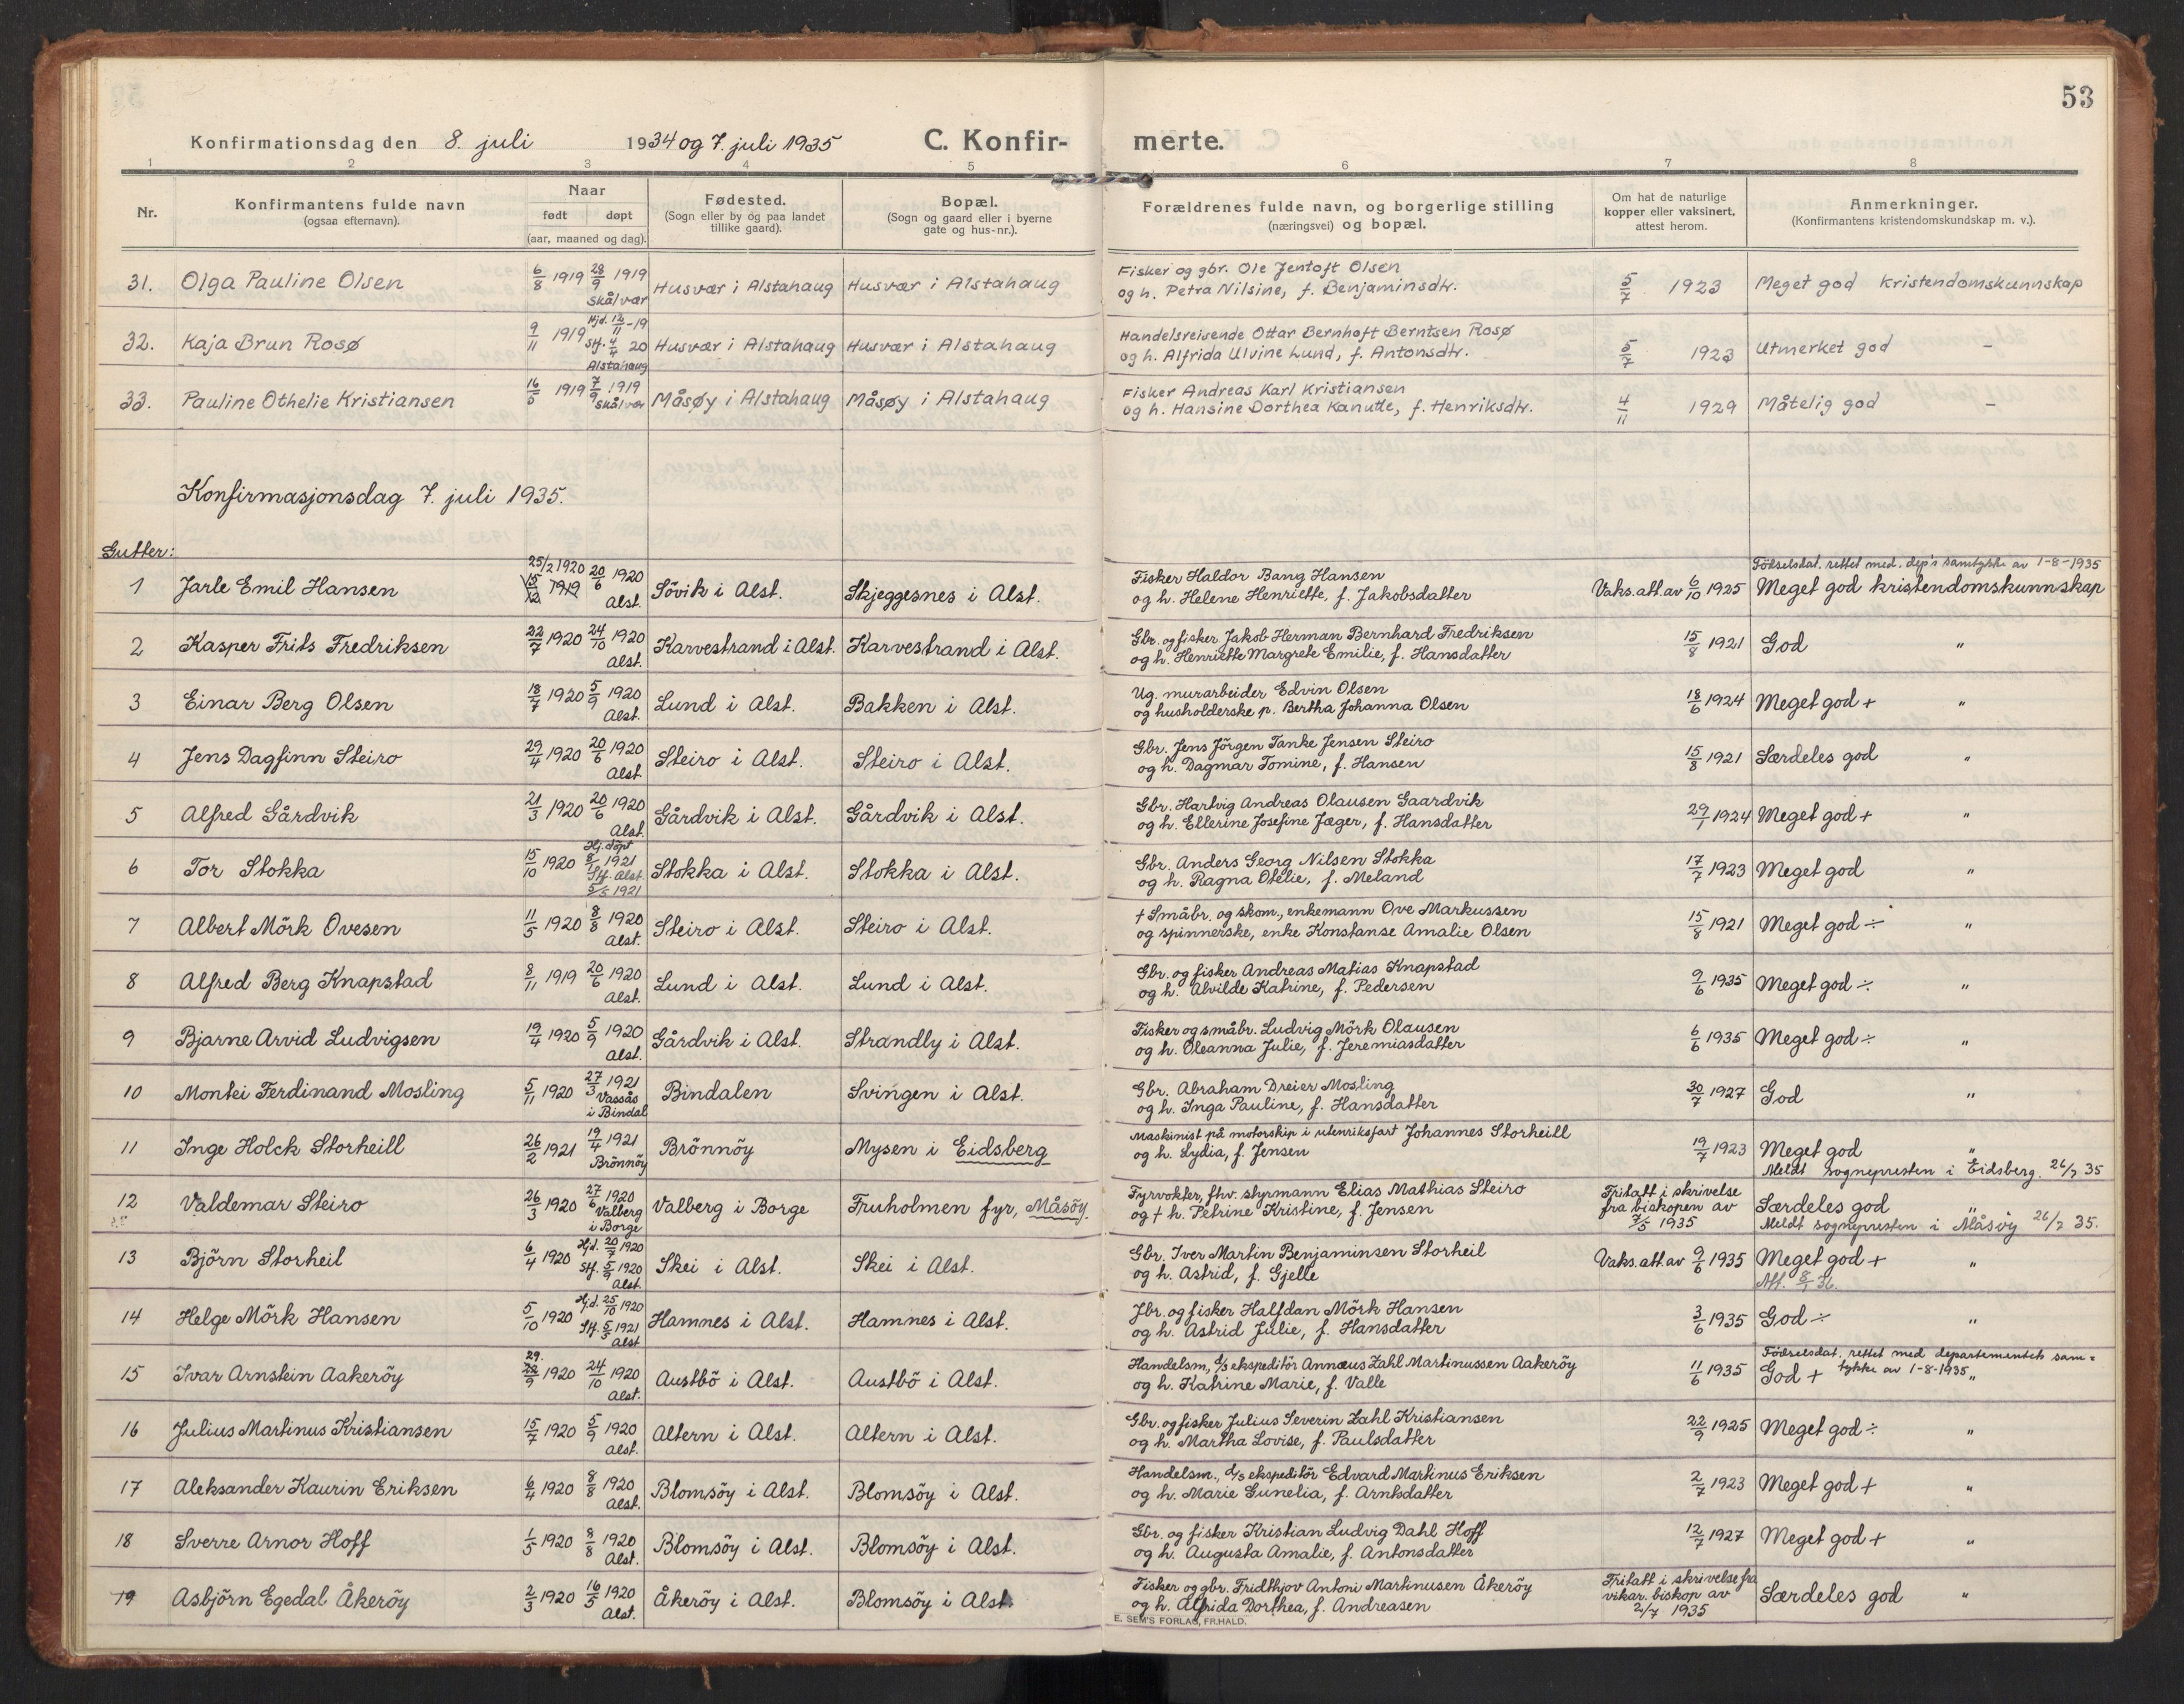 53
Konfirmationsdag den 8. juli 1934 og 7. juli 1935 C. Konfir- merte.
1 2 3 4 5 6 7 8
Nr. Konfirmantens fulde navn (ogsaa efternavn). Naar født døpt (aar, maaned og dag). Fødested. (Sogn eller by og paa landet tillike gaard). Bopæl. (Sogn og gaard eller i byerne gate og hus-nr.). Forældrenes fulde navn, og borgerlige stilling (næringsvei) og bopæl. Om hat de naturlige kopper eller vaksinert, attest herom. Anmerkninger. (Konfirmantens kristendomskundskap m. v.).
31. Olga Pauline Olsen 6/8 1919 28/9 1919 Skålvær Husvær i Alstahaug Husvær i Alstahaug Fisker og gbr. Ole Jentoft Olsen 5/7 1923 Meget god kristendomskunnskap
og h. Petra Nilsine, f. Benjaminsdtr.
32. Kaja Brun Rosø 9/11 1919 Hjd. 12/11-19 Stf. 4/4 20 Alstahaug Husvær i Alstahaug Husvær i Alstahaug Handelsreisende Ottar Bernhoft Berntsen Rosø 5/7 1923 Utmerket god –
og h. Alfrida Ulvine Lund, f. Antonsdtr.
33. Pauline Othelie Kristiansen 1919 7/9 1919 Skålvær Måsøy i Alstahaug Måsøy i Alstahaug Fisker Andreas Karl Kristiansen 4/11 1929 Måtelig god –
og h. Hansine Dorthea Kanutte, f. Henriksdtr.
Konfirmasjonsdag 7. juli 1935.
Gutter:
1 Jarle Emil Hansen 25/2 1920 15/12 1919 20/6 1920 Alst. Sövik i Alst. Skjeggesnes i Alst. Fisker Haldor Bang Hansen Vaks. att. av 6/10 1925 Födselsdat. rettet med. dep's samtykke av 1-8-1935 Meget god kristendomskunnskap
og h. Helene Henriette, f. Jakobsdatter
2 Kasper Frits Fredriksen 22/7 1920 24/10 1920 Alst. Karvestrand i Alst. Karvestrand i Alst. Gbr. og fisker Jakob Herman Bernhard Fredriksen 15/8 1921 God "
og h. Henriette Margrete Emilie, f. Hansdatter
3 Einar Berg Olsen 18/7 1920 5/9 1920 Alst. Lund i Alst. Bakken i Alst. Ug. murarbeider Edvin Olsen 18/6 1924 Meget god + "
og husholderske p. Bertha Johanna Olsen
4 Jens Dagfinn Steiro 29/4 1920 20/6 1920 Alst. Steiro i Alst. Steiro i Alst. Gbr. Jens Jörgen Tanke Jensen Steiro 15/8 1921 Særdeles god "
og h. Dagmar Tomine, f. Hansen
5 Alfred Gårdvik 21/3 1920 20/6 1920 Alst. Gårdvik i Alst. Gårdvik i Alst. Gbr. Hartvig Andreas Olausen Gaardvik 29/1 1924 Meget god + "
og h. Ellerine Josefine Jæger, f. Hansdatter
6 Tor Stokka 15/10 1920 Hj. döpt 8/1 1921 Stf. Alst. 5/5 1921 Stokka i Alst. Stokka i Alst. Gbr. Anders Georg Nilsen Stokka 17/7 1923 Meget god "
og h. Ragna Otelie, f. Meland
7 Albert Mörk Ovesen 11/5 1920 8/8 1920 Alst. Steiro i Alst. Steiro i Alst. + Småbr. og skom., enkemann Ove Markussen 15/8 1921 Meget god ÷ "
og spinnerske, enke Konstanse Amalie Olsen
8 Alfred Berg Knapstad 8/11 1919 20/6 1920 Alst. Lund i Alst. Lund i Alst. Gbr. og fisker Andreas Matias Knapstad 9/6 1935 Meget god ÷ "
og h. Alvilde Katrine, f. Pedersen
9 Bjarne Arvid Ludvigsen 19/4 1920 5/9 1920 Alst. Gårdvik i Alst. Strandly i Alst. Fisker og småbr. Ludvig Mörk Olausen 6/6 1935 Meget god ÷ "
og h. Oleanna Julie, f. Jeremiasdatter
10 Montei Ferdinand Mosling 5/11 1920 27/3 1921 Vassås i Bindal Bindalen Svingen i Alst. Gbr. Abraham Dreier Mosling 30/7 1927 God "
og h. Inga Pauline, f. Hansdatter
11 Inge Holck Storheill 26/2 1921 19/4 1921 Brönnöy Brönnöy Mysen i Eidsberg Maskinist på motorskip i utenriksfart Johannes Storheill 19/7 1923 Meget god "
og h. Lydia, f. Jensen Meldt sognepresten i Eidsberg. 26/7 35
12 Valdemar Steiro 26/3 1920 27/6 1920 Valberg i Borge Valberg i Borge Fruholmen fyr, Måsöy. Fyrvokter, fhv. styrmann Elias Mathias Steiro Fritatt i skrivelse fra biskopen av 7/5 1935 Særdeles god "
og + h. Petrine Kristine, f. Jensen Meldt sognepresten i Måsöy 26/7 35.
13 Björn Storheil 6/4 1920 Hjd. 20/7 1920 Stf. 5/9 1920 Alst. Skei i Alst. Skei i Alst. Gbr. Iver Martin Benjaminsen Storheil Vaks. att. av 9/6 1935 Meget god + "
og h. Astrid, f. Gjelle Att. 36.
14 Helge Mörk Hansen 5/10 1920 Hjd. 25/10 1920 Stf. 5/5 1921 Alst Hamnes i Alst. Hamnes i Alst. Jbr. og fisker Halfdan Mörk Hansen 3/6 1935 God ÷ "
og h. Astrid Julie, f. Hansdatter
15 Ivar Arnstein Aakeröy 29. 22/9 1920 24/10 1920 Alst. Austbö i Alst. Austbö i Alst. Handelsm., d/s ekspeditör Annæus Zahl Martinussen Aakeröy 11/6 1935 Födselsdat. rettet med departementets sam= tykke av 1-8-1935 God + "
og h. Katrine Marie, f. Valle
16 Julius Martinus Kristiansen 15/7 1920 5/9 1920 Alst. Altern i Alst. Altern i Alst. Gbr. og fisker Julius Severin Zahl Kristiansen 22/9 1925 Meget god ÷ "
og h. Martha Lovise, f. Paulsdatter
17 Aleksander Kaurin Eriksen 6/4 1920 8/8 1920 Alst. Blomsöy i Alst. Blomsöy i Alst. Handelsm., d/s ekspeditör Edvard Martinus Eriksen 2/7 1923 Meget god + "
og h. Marie Gunelia, f. Arntsdatter
18 Sverre Arnor Hoff 1/5 1920 8/8 1920 Alst. Blomsöy i Alst. Blomsöy i Alst. Gbr. og fisker Kristian Ludvig Dahl Hoff 12/7 1927 Meget god + "
og h. Augusta Amalie, f. Antonsdatter
19 Asbjörn Egedal Åkeröy 2/3 1920 16/5 1920 Alst. Åkeröy i Alst. Blomsöy i Alst. Fisker og gbr. Fridthjov Antoni Martinusen Åkeröy Fritatt i skrivelse fra vikar. biskop av 2/7 1935 Særdeles god "
og h. Alfrida Dorthea, f. Andreasen
E. SEM'S FORLAG, FR.HALD.